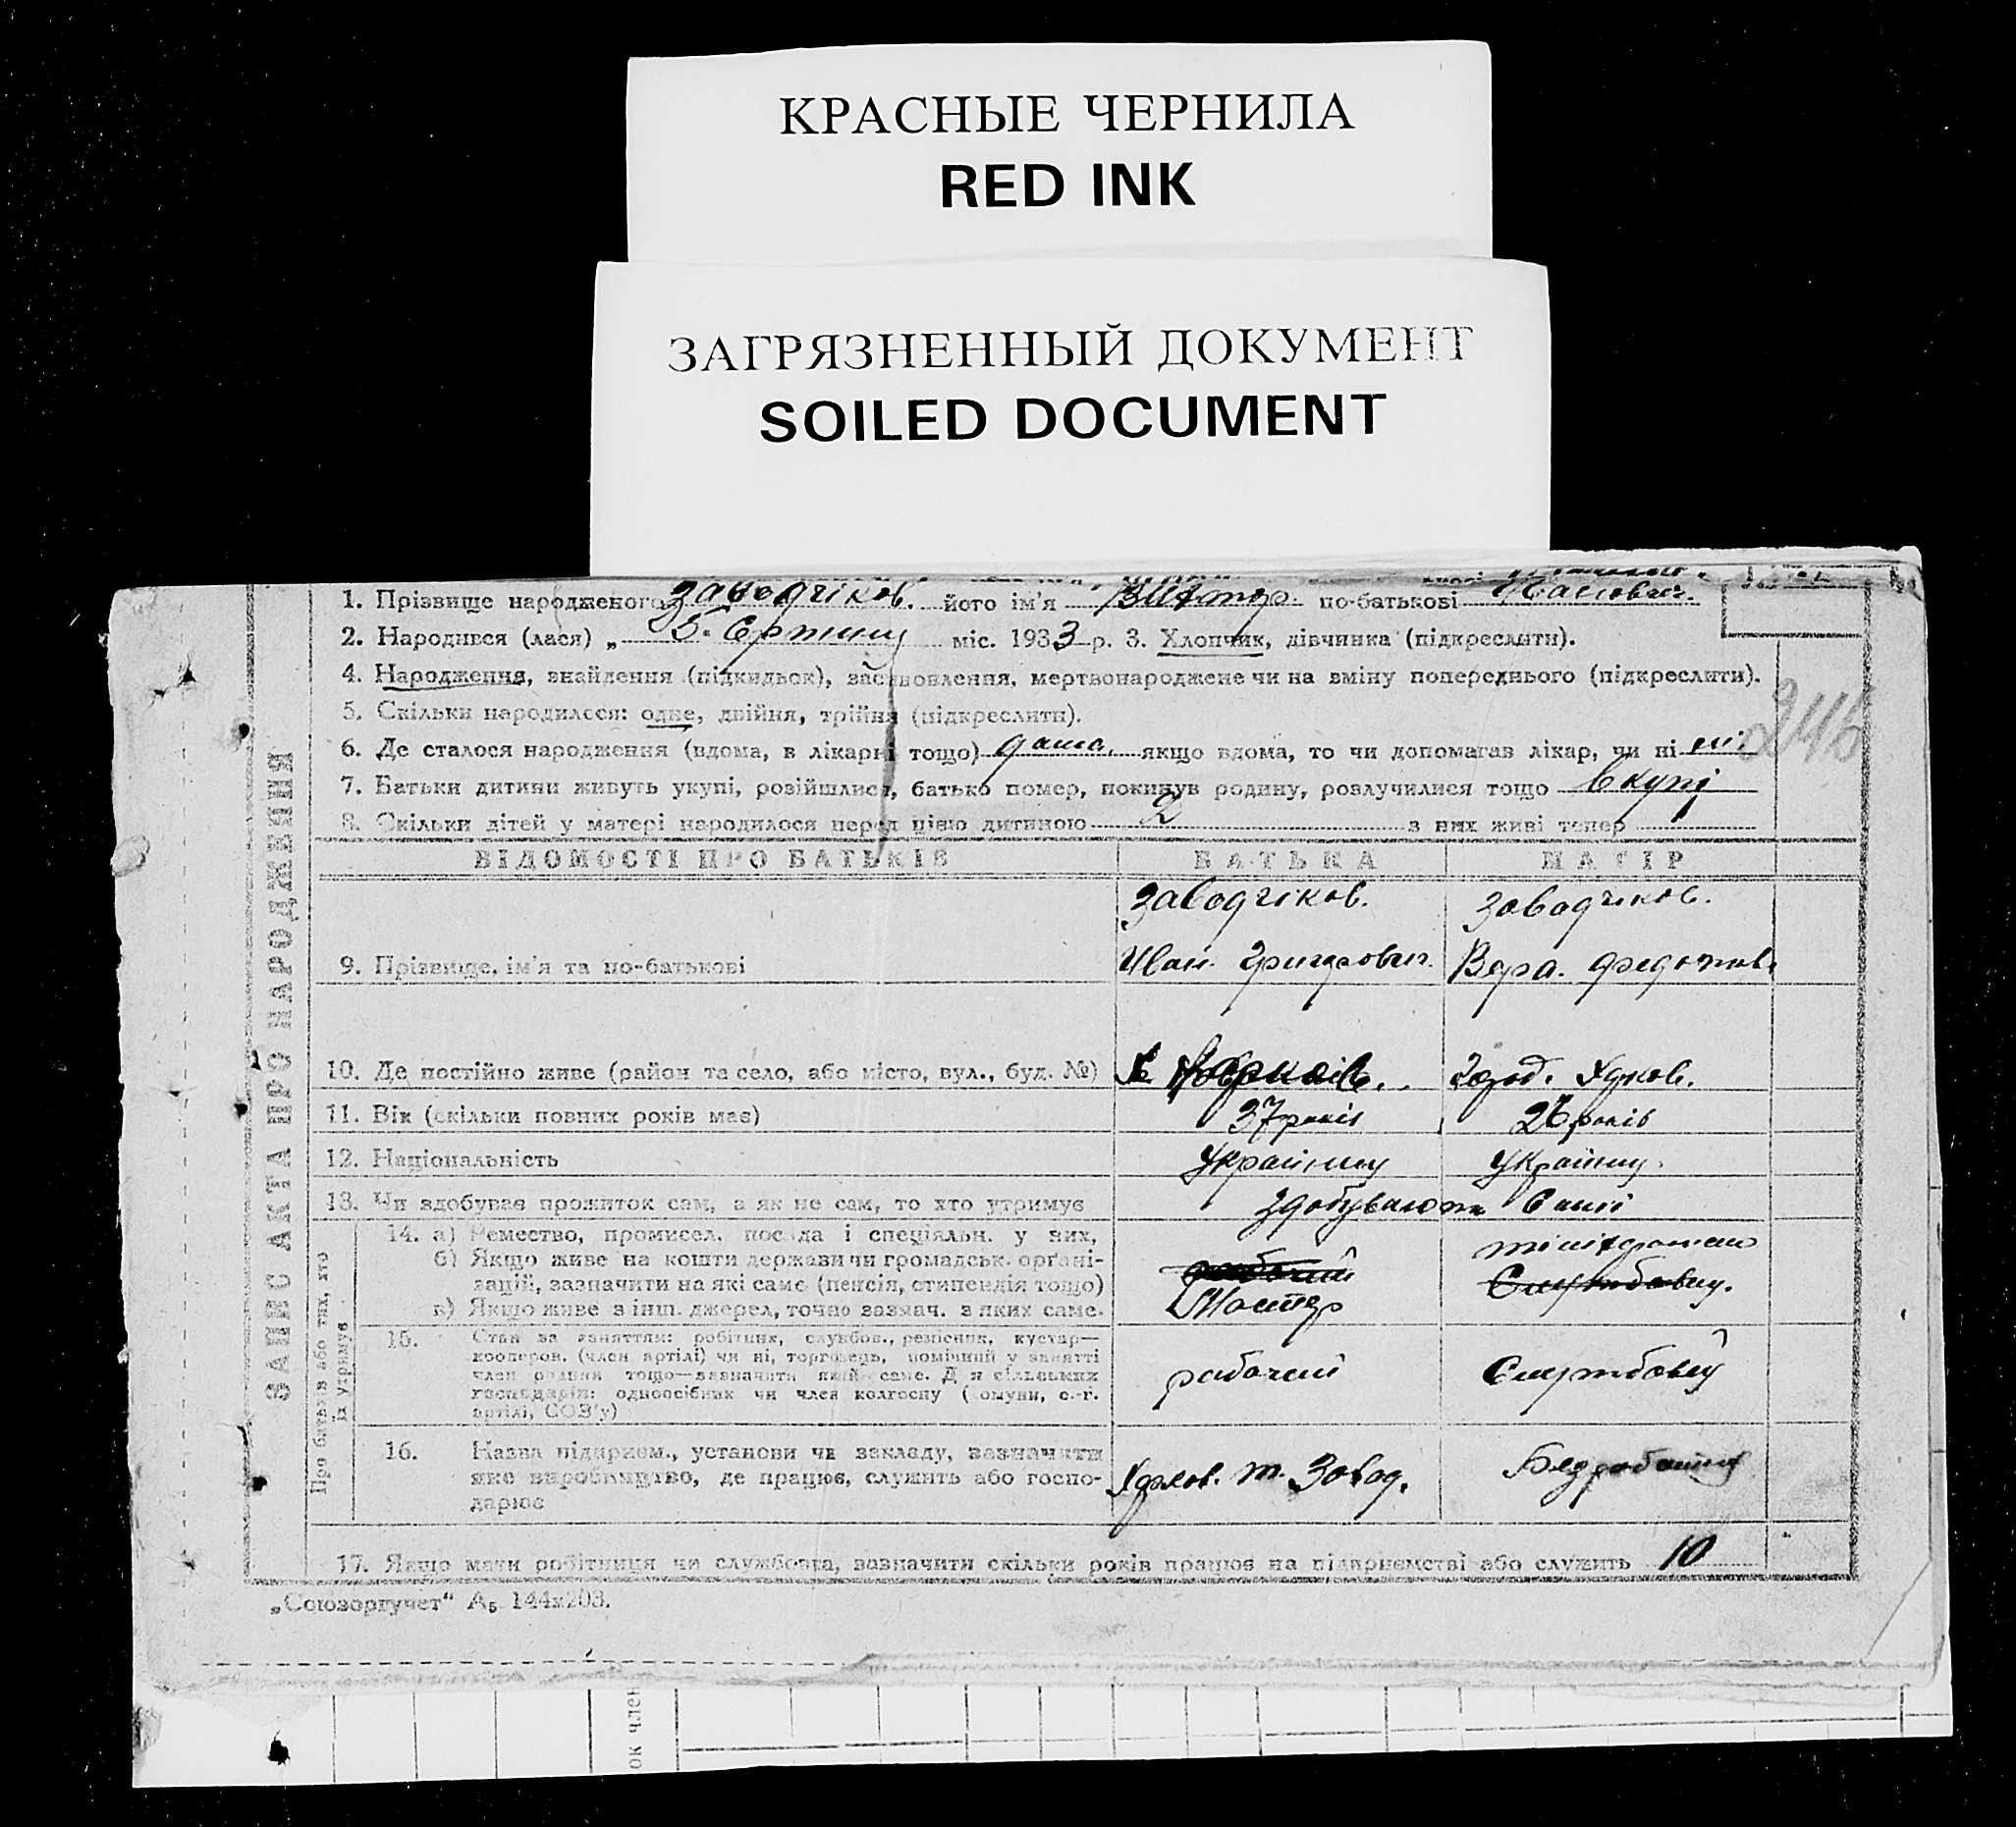 КРАСНЫЕ ЧЕРНИЛА
RED INK
ЗАГРЯЗНЕННЫЙ ДОКУМЕНТ
SOILED DOCUMENT
1. Прізвище народженого Заводчіков. його ім'я Віктор. по-батькові
2. Народився (лася) „ 5. міс. 1933 р. 3. Хлопчик, дівчинка (підкреслити).
4. Народження, знайдення (підкидьок), встановлення, мертвонароджене чи на зміну попереднього (підкреслити).
5. Скільки народилося: одне, двійня, трійня (підкреслити).
6. Де сталося народження (вдома, в лікарні тощо) якщо вдома, то чи допомагав лікар, чи ні ні.
7. Батьки дитини живуть укупі, розійшлися, батько помер, покинув родину, розлучилися тощо Вкупі
8. Скільки дітей у матері народилося перед цією дитиною 2 з них живі тепер
246
ЗАПИС АКТА ПРО НАРОДЖЕННЯ
ВІДОМОСТІ ПРО БАТЬКІВ БАТЬКА МАТІР
Заводчіков. Заводчіков.
9. Прізвище, ім'я та по-батькові Иван. Вера.
10. Де постійно живе (район та село, або місто, вул., буд. №)
11. Вік (скільки повних років має) 37 років 26 років
12. Національність Українц Українц.
13. Чи здобуває прожиток сам, а як не сам, то хто утримує Здобувають Самі
Про батьків або тих, хто їх утримує
14. а) Ремество, промисел, посада і спеціяльн. у них,
б) Якщо живе на кошти держави чи громадськ. органі-
зацій, зазначити на які саме (пенсія, стипендія тощо)
в) Якщо живе з інш. джерел, точно зазнач. з яких саме.
Мастер
15. Стан за заняттям: робітник, службов., ремісник, кустар—
кооперов. (член артілі) чи ні, торговець, помічний у занятті
член родини тощо—зазначити який саме. Для сільських
господарів: одноосібник чи член колгоспу (комуни, с.-г.
артілі, СОЗ'у)
рабочий Службовец
16. Назва підприєм., установи чи закладу, зазначити
яке виробництво, де працює, служить або госпо-
дарює
Завод.
17. Якщо мати робітниця чи службовка, зазначити скільки років працює на підприємстві або служить 10
„Союзоргучет“ А₅ 144х203.
ок член